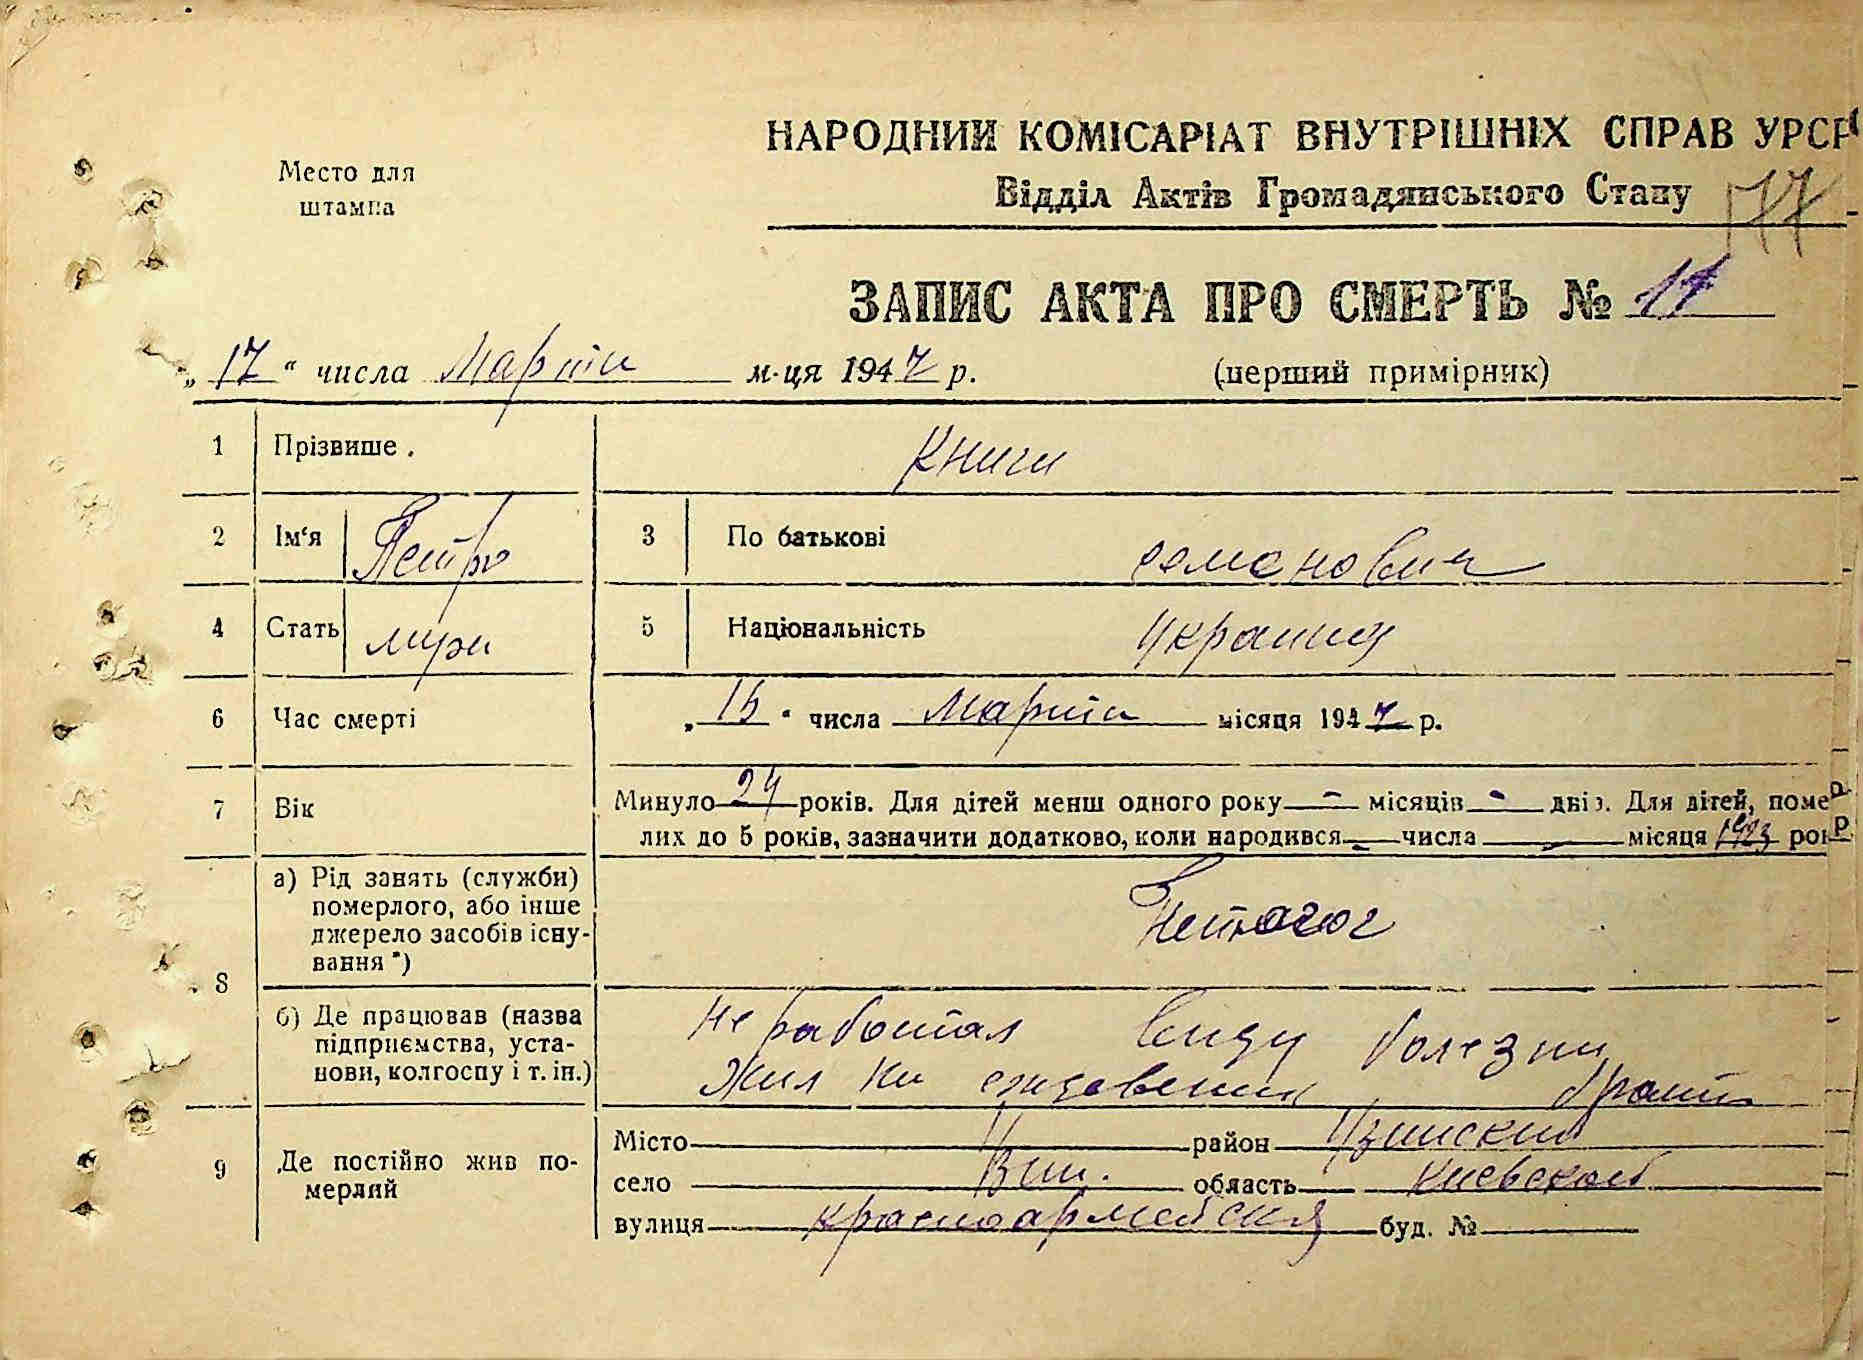 Место для
штампа
НАРОДНИЙ КОМІСАРІАТ ВНУТРІШНІХ СПРАВ УРСР
Відділ Актів Громадянського Стану
ЗАПИС АКТА ПРО СМЕРТЬ № 11
„17“ числа Марта м-ця 1947 р. (перший примірник)
1 Прізвише . Книги
2 Ім'я Петро 3 По батькові семенович
4 Стать муж 5 Національність Украинц
6 Час смерті „15“ числа Марта місяця 1947 р.
7 Вік Минуло 24 років. Для дітей менш одного року - місяців - днів. Для дітей, помер-
лих до 5 років, зазначити додатково, коли народився - числа - місяця 1923 рок
8 а) Рід занять (служби)
померлого, або інше
джерело засобів існу-
вання *)
б) Де працював (назва
підприємства, уста-
нови, колгоспу і т. ін.)
Не работал Виду болезни
Жил на брата
9 Де постійно жив по-
мерлий
Місто район Узинский
село область Киевской
вулиця красноармейская буд. №